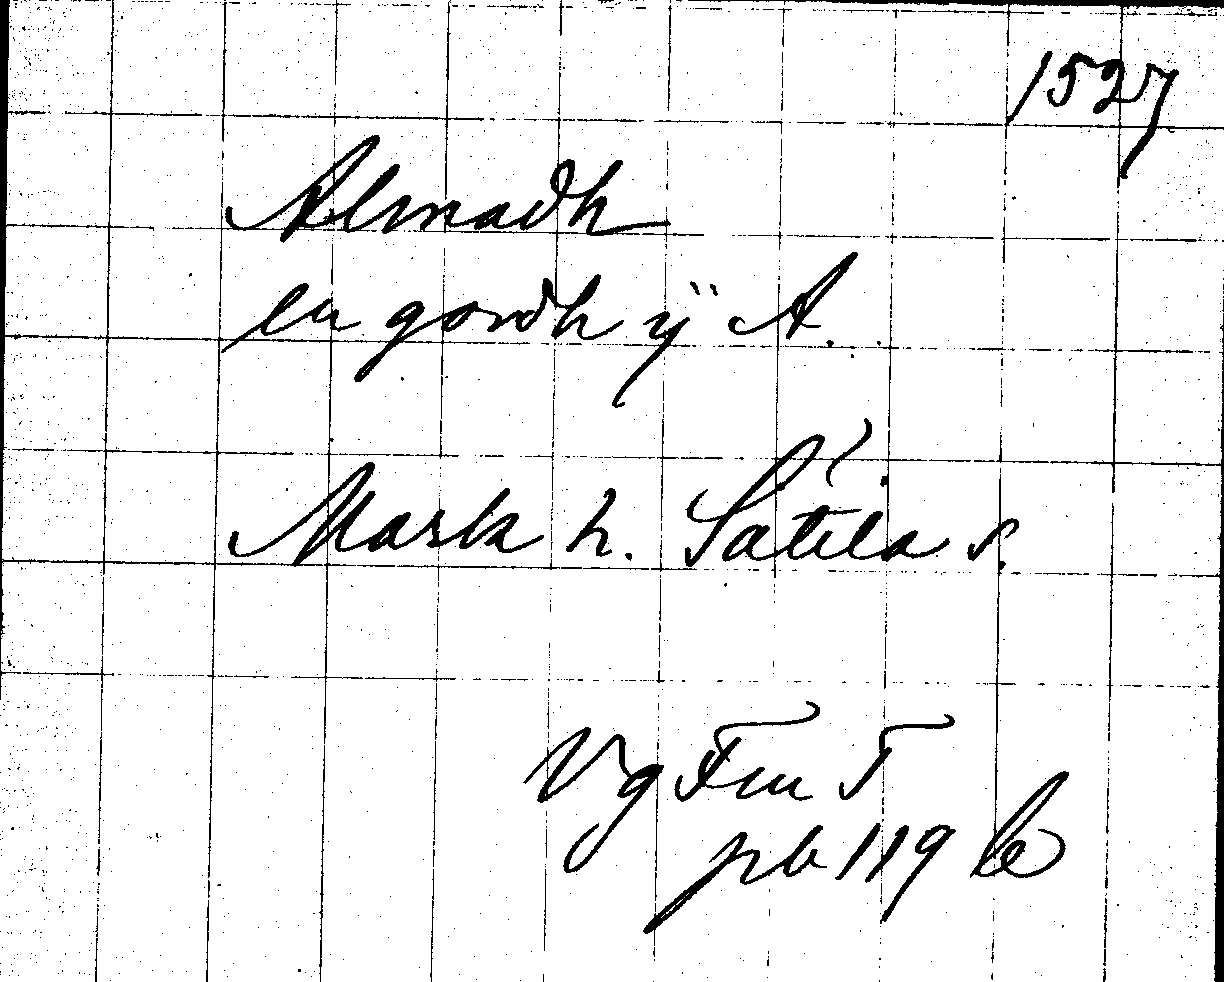 1527
Almadh
en gordh ÿ A.
Mark h. Sätila s.
Vg Fnu 5
pb 119 b